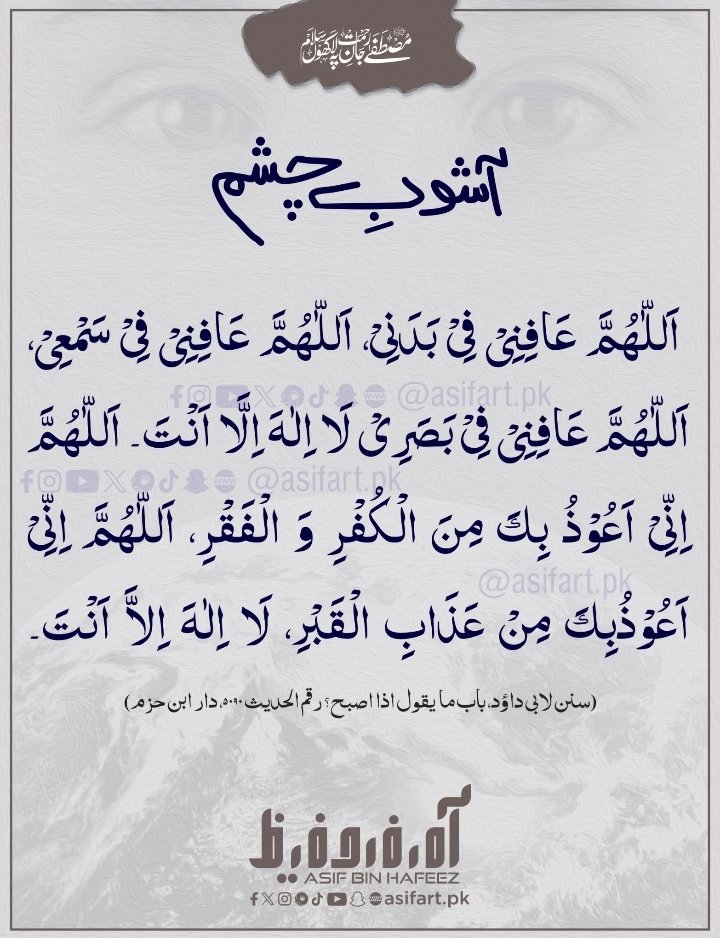 مصطفیٰ جانِ رحمت پہ لاکھوں سلام
آشوبِ چشم
اَللّٰهُمَّ عَافِنِیْ فِیْ بَدَنِیْ، اَللّٰهُمَّ عَافِنِیْ فِیْ سَمْعِیْ،
@asifart.pk
اَللّٰهُمَّ عَافِنِیْ فِیْ بَصَرِیْ لَا اِلٰهَ اِلَّا اَنْتَ۔ اَللّٰهُمَّ
@asifart.pk
اِنِّیْ اَعُوْذُ بِكَ مِنَ الْکُفْرِ وَ الْفَقْرِ، اَللّٰهُمَّ اِنِّیْ
@asifart.pk
اَعُوْذُبِكَ مِنْ عَذَابِ الْقَبْرِ، لَا اِلٰهَ اِلاَّ اَنْتَ۔
(سنن لابی داؤد، باب ما یقول اذا اصبح؟ رقم الحدیث ۵۰۹۰، دار ابن حزم)
ASIF BIN HAFEEZ
@asifart.pk